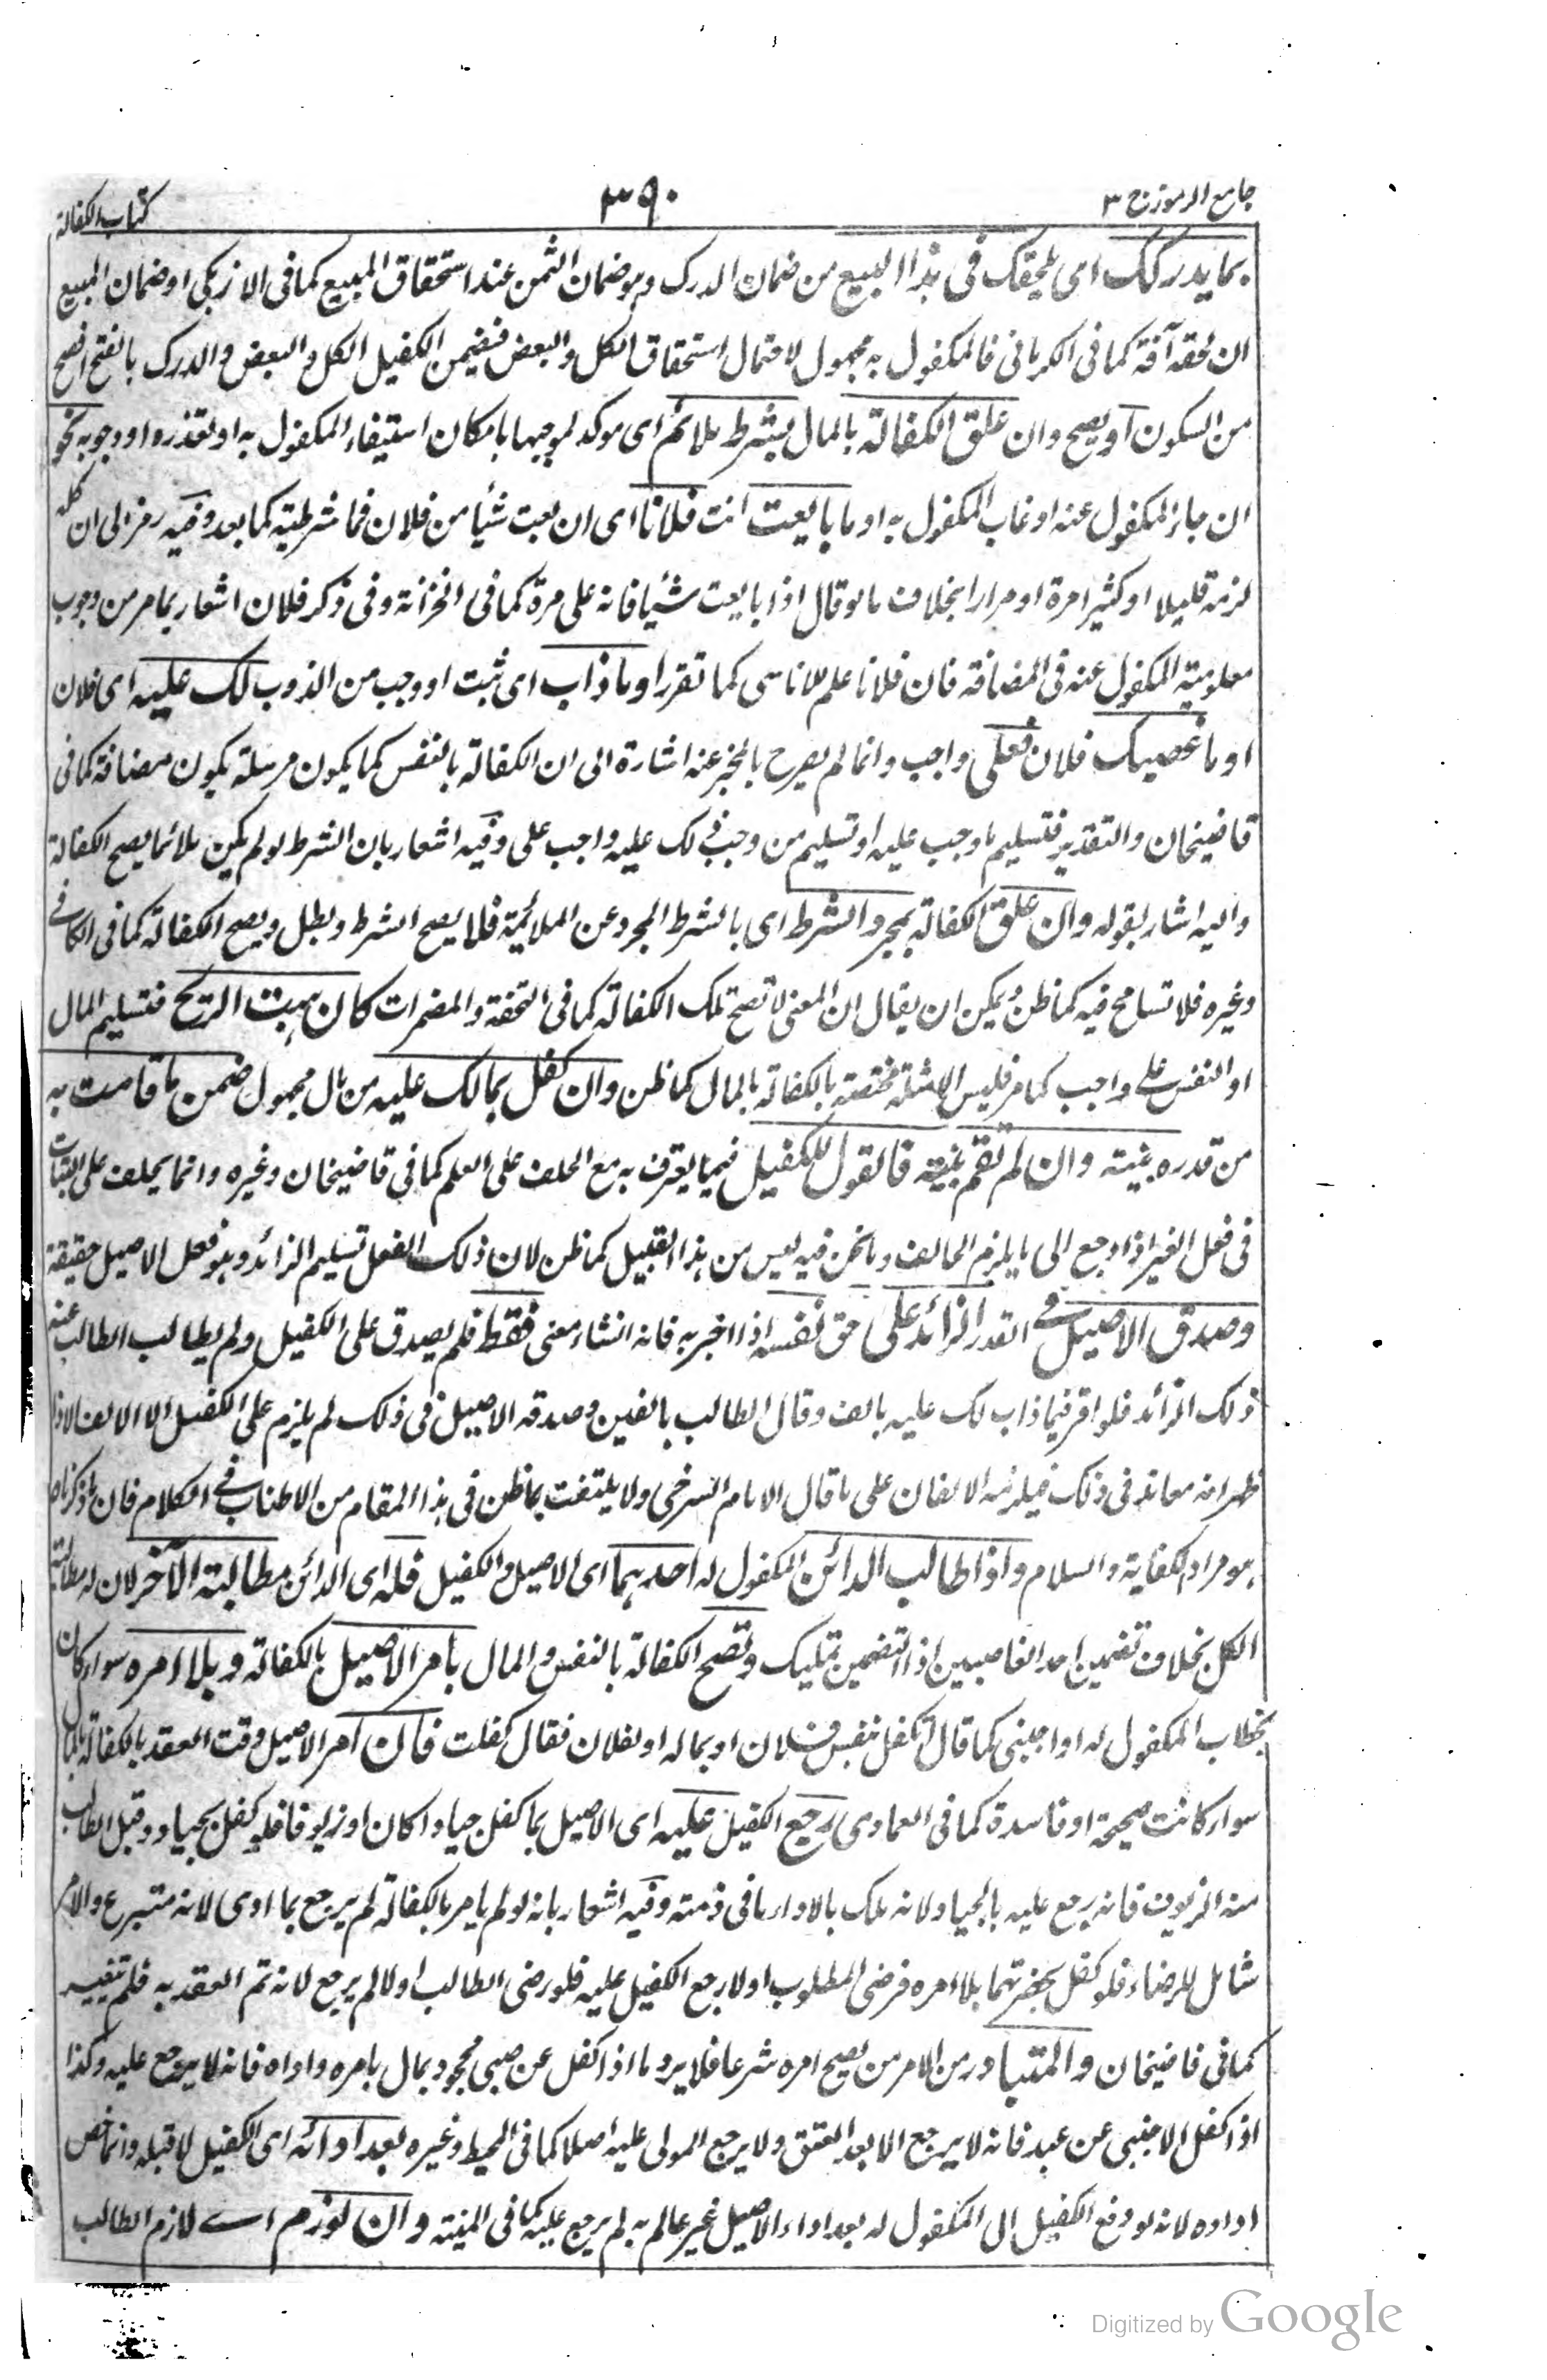 جامع الرموز ج ٣
٣٩٠
كتاب الكفالة
بما يدركك اى يلحقك فى هذا البيع من ضمان الدرك وهو ضمان الثمن عند استحقاق المبيع كما فى الازبكى او ضمان المبيع
ان لحقه آفة كما فى الكرمانى فالمكفول به مجهول لاحتمال استحقاق الكل والبعض فيضمن الكفيل الكل والبعض والدرك بالفتح افصح
من السكون او يصح وان علق الكفالة بالمال بشرط ملائم اى موكد لموجبها بامكان استيفاء المكفول به او تعذره او وجوبه نحو
ان جاء المكفول عنه او غاب المكفول به او ما بايعت انت فلانا اى ان بعت شيئا من فلان فما شرطية كما بعد وفيه رمز الى ان كله
لزمه قليلا او كثيرا مرة او مرارا بخلاف ما لو قال اذا بايعت شيئا فانه على مرة كما فى الخزانة وفى ذكر فلان اشعار بما مر من وجوب
معلومية المكفول عنه فى المضافة فان فلانا علم للاناسى كما تقرر او ما ذاب اى ثبت او وجب من الذوب لك عليه اى فلان
او ما غصبك فلان فعلى واجب وانما لم يصرح بالمخبر عنه اشارة الى ان الكفالة بالنفس كما يكون مرسلة يكون مضافة كما فى
قاضيخان والتقدير فتسليم ما وجب عليه او تسليم من وجب ذلك عليه واجب على وفيه اشعار بان الشرط لو لم يكن ملائما يصح الكفالة
واليه اشار بقوله وان علق الكفالة بمجرد الشرط اى بالشرط المجرد عن الملائمة فلا يصح الشرط وبطل ويصح الكفالة كما فى الكافى
وغيره فلا تسامح فيه كما ظن ويمكن ان يقال ان المعنى لا تصح تلك الكفالة كما فى التحفة والمضمرات كان هبت الريح فتسليم المال
او النفس على واجب كما مر فليس الامثلة مختصة بالكفالة بالمال كما ظن وان كفل بما لك عليه من مال مجهول ضمن ما قامت به
من قدره بينة وان لم تقم بينة فالقول للكفيل فيما يعترف به مع الحلف على العلم كما فى قاضيخان وغيره وانما يحلف على البتات
فى فعل الغير اذا رجع الى ما يلزم الحالف وما نحن فيه ليس من هذا القبيل كما ظن لان ذلك الفعل تسليم الزائد وهو فعل الاصيل حقيقة
وصدق الاصيل فى القدر الزائد على حق نفسه اذا اخبر به فانه انشاء معنى فقط فلم يصدق على الكفيل ولم يطالب الطالب عنه
ذلك الزائد فلو اقر فيما ذاب لك عليه بالف وقال الطالب بالفين وصدقه الاصيل فى ذلك لم يلزم على الكفيل الا الالف الا اذا
ظهر انه معاند فى ذلك فيلزمه الالفان على ما قال الامام السرخسى ولا يلتفت بما ظن فى هذا المقام من الاطناب فى الكلام فان ما ذكرناه
هو مراد الكفاية والسلام واذا طالب الدائن المكفول له احدهما اى الاصيل والكفيل فله اى الدائن مطالبة الآخر لان له مطالبة
الكل بخلاف تضمين احد الغاصبين اذ التضمين تمليك وتصح الكفالة بالنفس والمال بامر الاصيل بالكفالة وبلا امره سواء كان
بخطاب المكفول له او اجنبى كما قال اتكفل بنفس فلان او بماله او لفلان فقال كفلت فان امر الاصيل وقت العقد بالكفالة بالمال
سواء كانت صحيحة او فاسدة كما فى العمادى رجع الكفيل عليه اى الاصيل بما كفل جيادا كان او زيوفا فلو كفل بجياد وقبل الطالب
منه الزيوف فانه يرجع عليه بالجياد لانه ملك بالاداء ما فى ذمته وفيه اشعار بانه لو لم يامر بالكفالة لم يرجع بما ادى لانه متبرع والامر
شامل للرضاء فلو كفل بحضرتهما بلا امره فرضى المطلوب اولا رجع الكفيل عليه فلو رضى الطالب اولا لم يرجع لانه تم العقد به فلم يتغير
كما فى قاضيخان والمتبادر من الامر من يصح امره شرعا فلا يرد ما اذا كفل عن صبى محجور بمال بامره واداه فانه لا يرجع عليه وكذا
اذا كفل الاجنبى عن عبد فانه لا يرجع الا بعد العتق ولا يرجع المولى عليه اصلا كما فى المحيط وغيره بعد ادائه اى الكفيل لا قبله وانما خص
اداءه لانه لو دفع الكفيل الى المكفول له بعد اداء الاصيل غير عالم به لم يرجع عليه كما فى المنية وان لوزم اى لازم الطالب
Digitized by Google